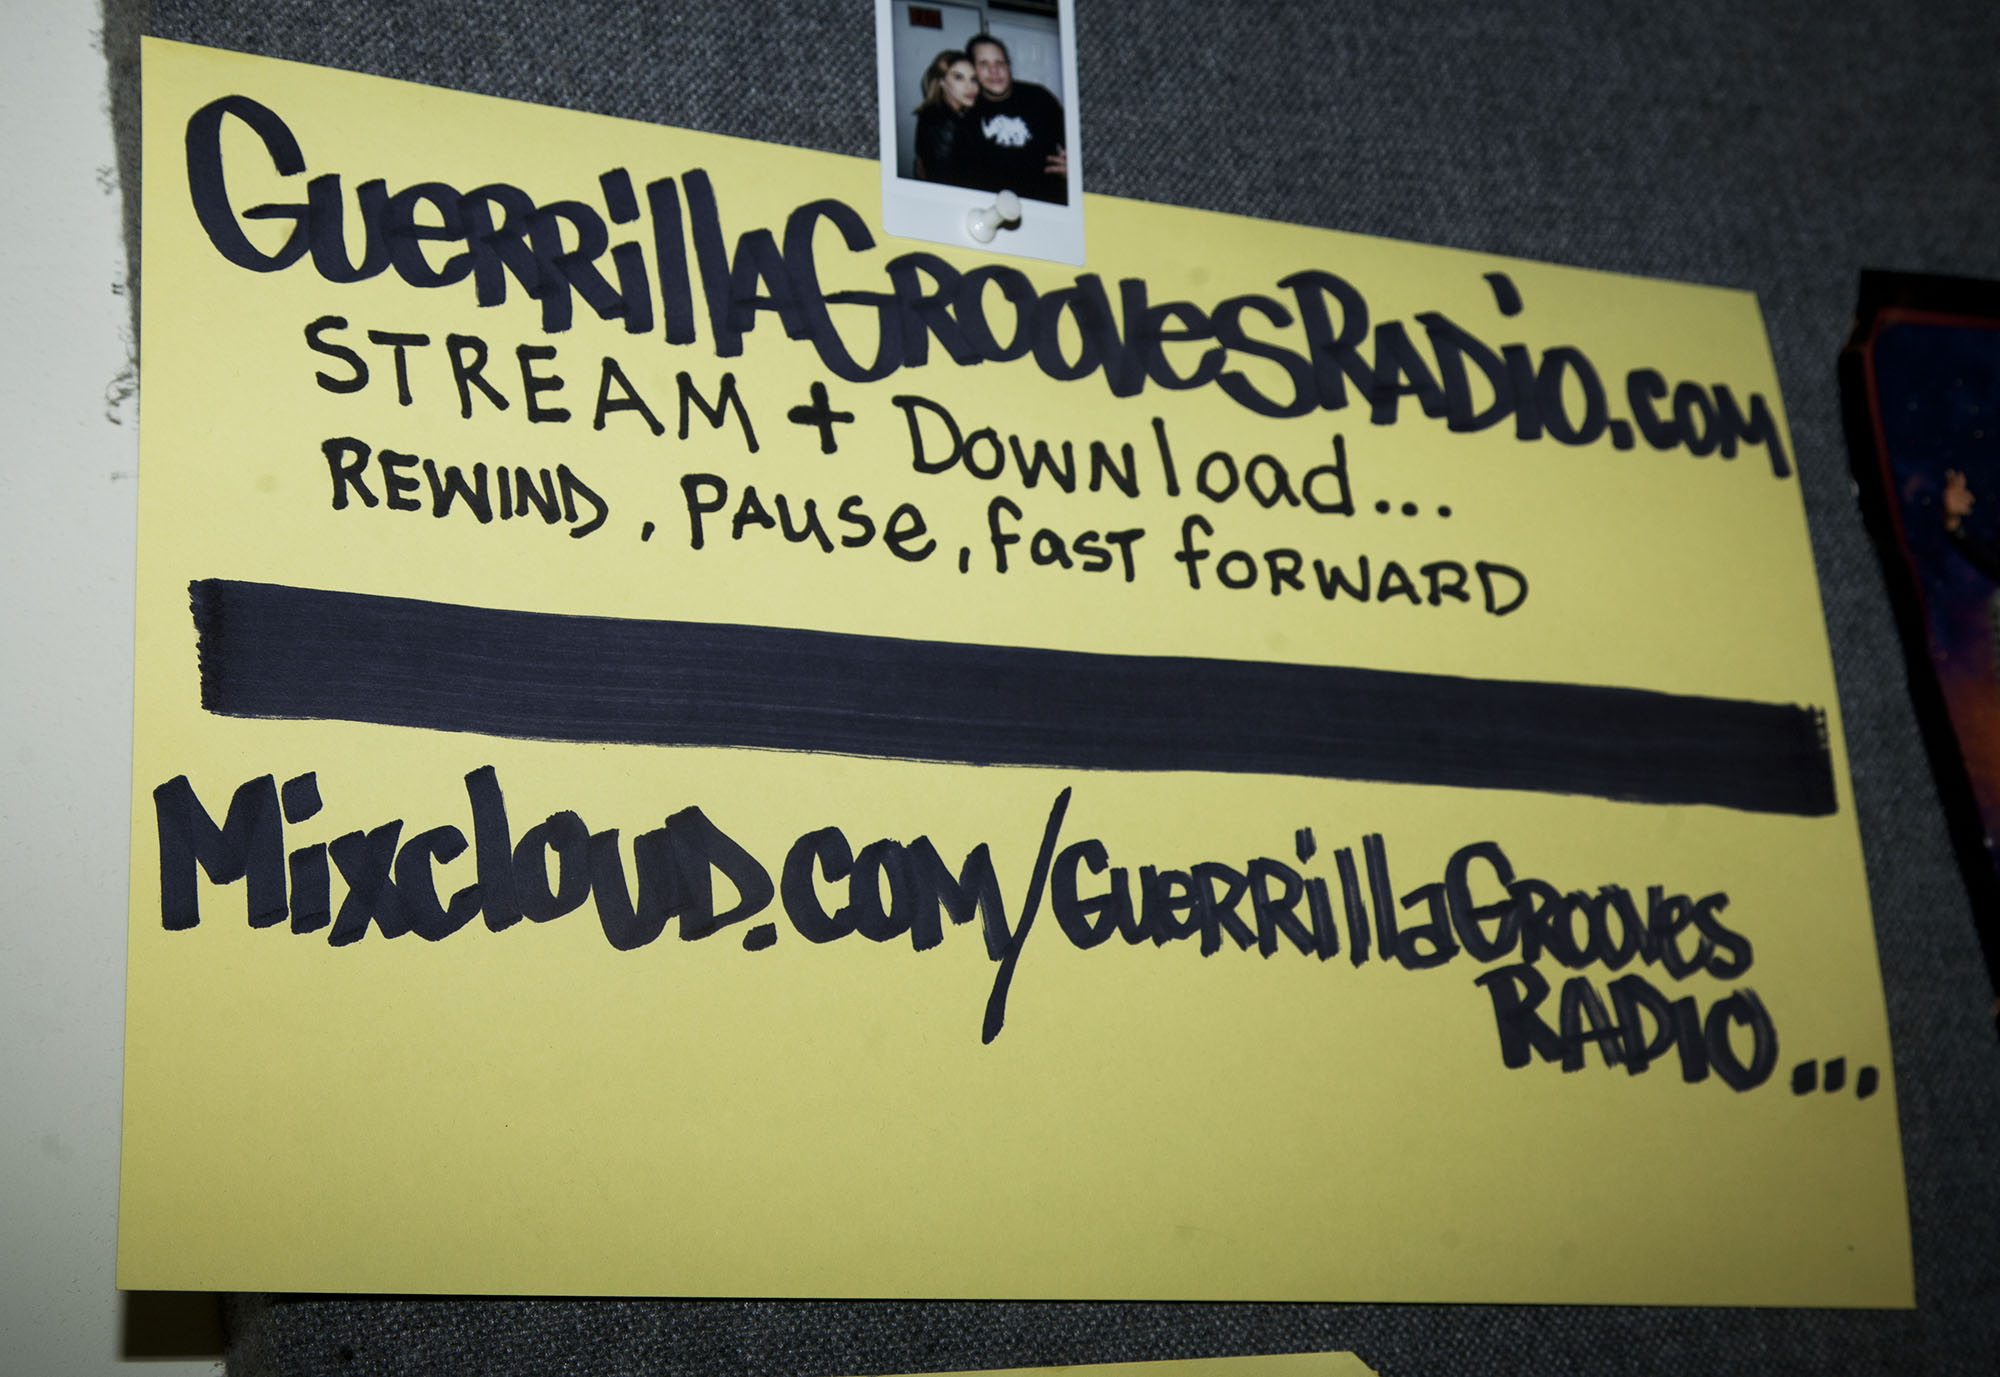 GuerrillaGroovesRadio.com
STREAM + Download...
REWIND, PAUSE, fAST fORWARD
Mixcloud.com/GuerrillaGrooves
RADIO...